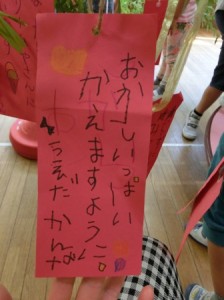 おかしいっぱい
かえますように。
うえだかんな